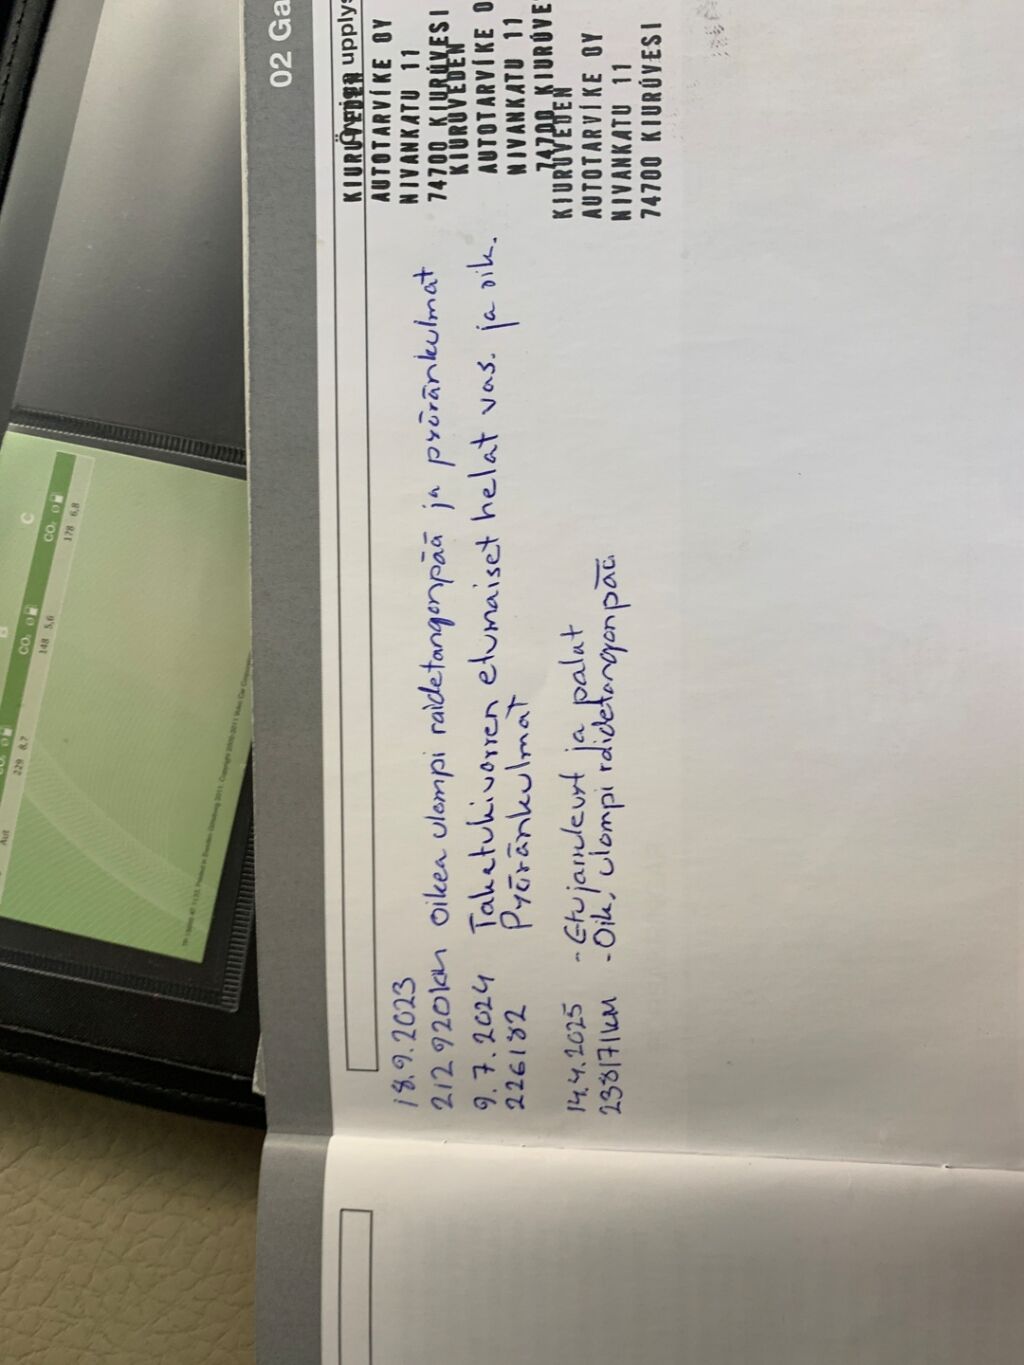 02 Ga
Övriga upplys
KIURUVEDEN
AUTOTARVIKE OY
NIVANKATU 11
74700 KIURUVESI
18.9.2023
212 920km oikea ulompi raidetangonpää ja pyöränkulmat
KIURUVEDEN
AUTOTARVIKE O
NIVANKATU 11
74700 KIURUVE
9.7.2024 Takatukivarren etumaiset helat vas. ja oik.
226182 Pyöränkulmat
KIURUVEDEN
AUTOTARVIKE OY
NIVANKATU 11
74700 KIURUVESI
14.4.2025 - Etujarrulevyt ja palat
238171km - Oik. ulompi raidetangonpää
Aut
C
CO₂
CO₂
CO₂
229 8,7
148 5,6
178 6,8